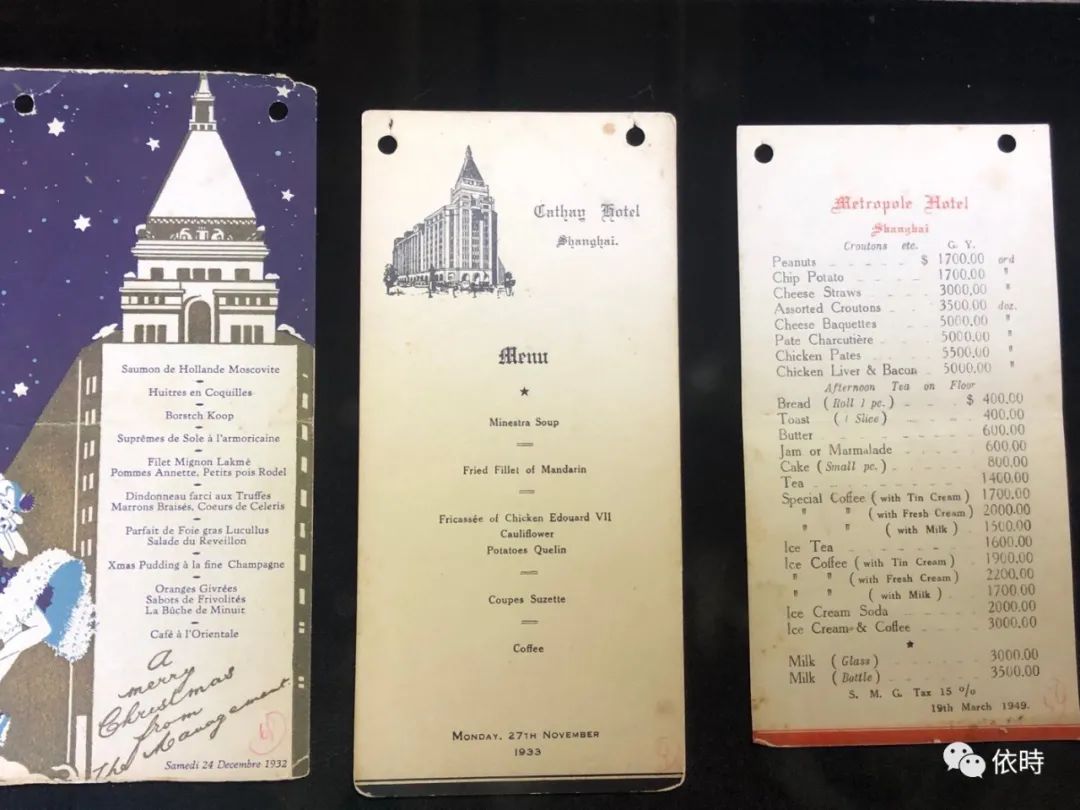 Saumon de Hollande Moscovite
Huitres en Coquilles
Borstch Koop
Suprêmes de Sole à l'armoricaine
Filet Mignon Lakmé
Pommes Annette, Petits pois Rodel
Dindonneau farci aux Truffes
Marrons Braisés, Coeurs de Celeris
Parfait de Foie gras Lucullus
Salade du Reveillon
Xmas Pudding à la fine Champagne
Oranges Givrées
Sabots de Frivolités
La Bûche de Minuit
Café à l'Orientale
A
merry
Christmas
from
The Management
Samedi 24 Decembre 1932
Cathay Hotel
Shanghai.
Menu
Minestra Soup
Fried Fillet of Mandarin
Fricassée of Chicken Edouard VII
Cauliflower
Potatoes Quelin
Coupes Suzette
Coffee
MONDAY, 27TH NOVEMBER
1933
Metropole Hotel
Shanghai
Croutons etc. G. Y.
Peanuts $ 1700.00 ord
Chip Potato 1700.00 "
Cheese Straws 3000.00 "
Assorted Croutons 3500.00 doz.
Cheese Baquettes 5000.00 "
Pate Charcutière 5000.00 "
Chicken Pates 5500.00 "
Chicken Liver & Bacon 5000.00 "
Afternoon Tea on Floor
Bread (Roll 1 pc.) $ 400.00
Toast (1 Slice) 400.00
Butter 600.00
Jam or Marmalade 600.00
Cake (Small pc.) 800.00
Tea 1400.00
Special Coffee (with Tin Cream) 1700.00
" " (with Fresh Cream) 2000.00
" " (with Milk) 1500.00
Ice Tea 1600.00
Ice Coffee (with Tin Cream) 1900.00
" " (with Fresh Cream) 2200.00
" " (with Milk) 1700.00
Ice Cream Soda 2000.00
Ice Cream & Coffee 3000.00
Milk (Glass) 3000.00
Milk (Bottle) 3500.00
S. M. G. Tax 15 %
19th March 1949.
依時